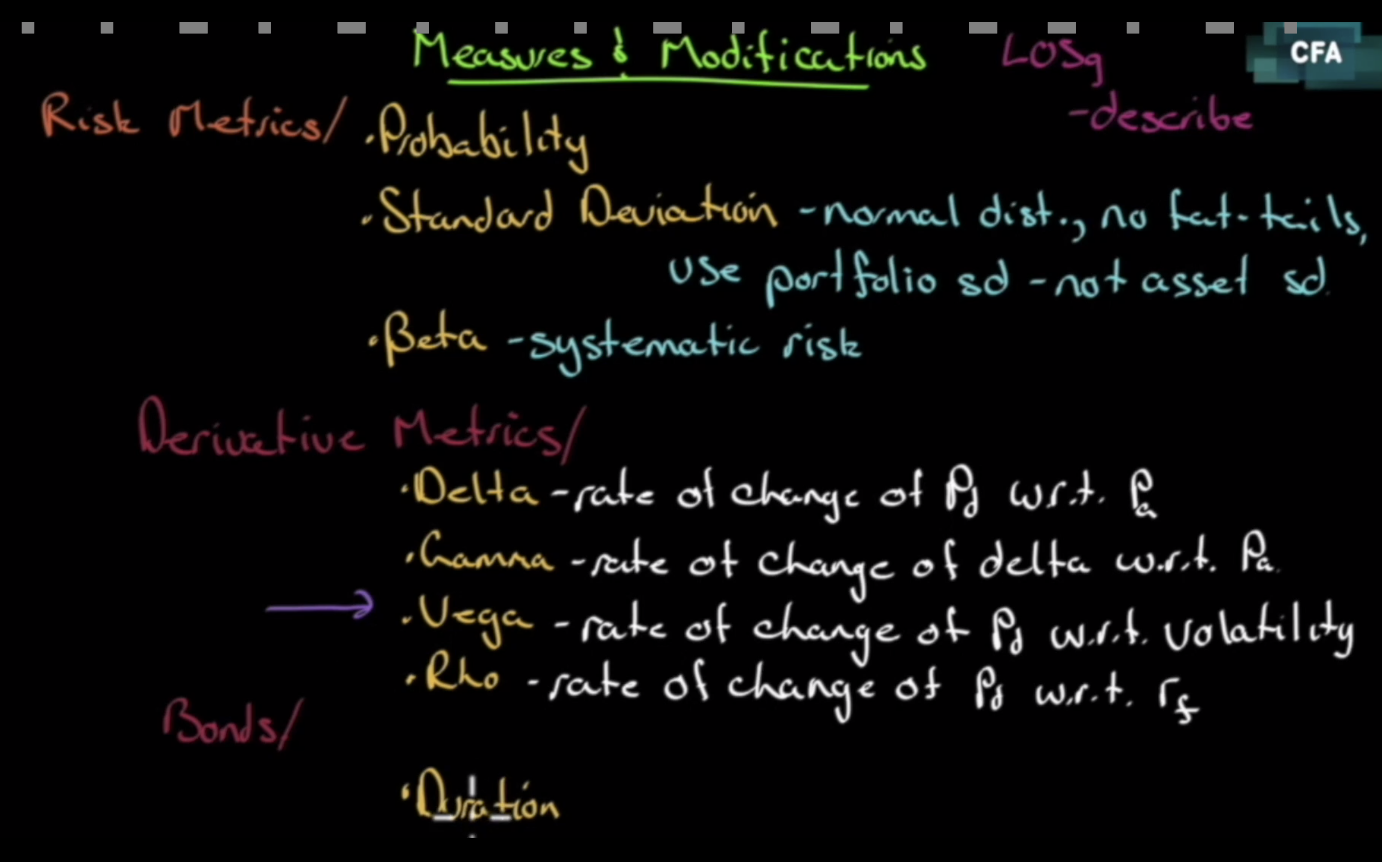 Measures & Modifications
LOSg
CFA
-describe
Risk Metrics/
·Probability
·Standard Deviation -normal dist., no fat-tails,
use portfolio sd -not asset sd.
·Beta -systematic risk
Derivative Metrics/
·Delta -rate of change of Pd w.r.t. Pa
·Gamma -rate of change of delta w.r.t. Pa
·Vega -rate of change of Pd w.r.t. volatility
·Rho -rate of change of Pd w.r.t. rf
Bonds/
·Duration